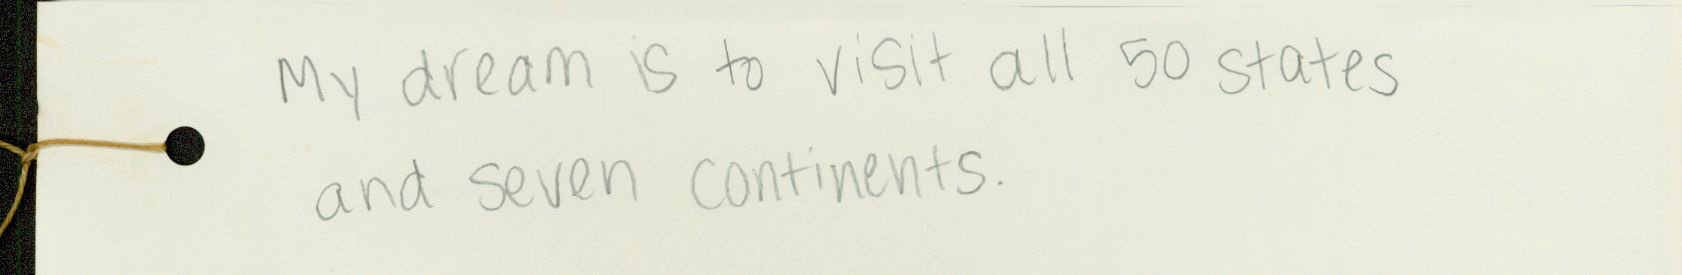 My dream is to visit all 50 states
and seven continents.